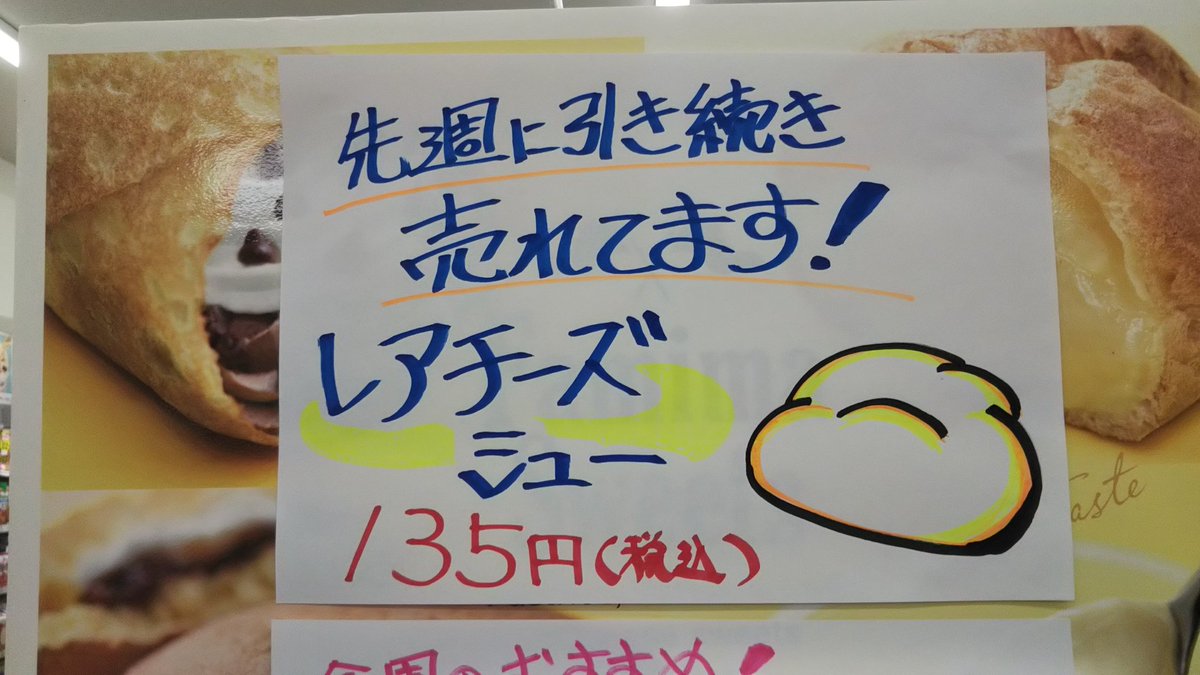 先週に引き続き
売れてます!
レアチーズ
シュー
135円(税込)
Taste
今週のおすすめ!